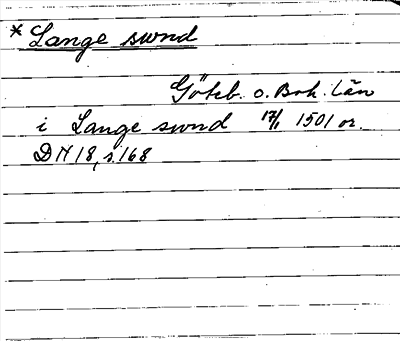 * Lange swnd
Göteb. o. Boh. län
i Lange swnd 17/1 1501 or.
DN 18, s. 168